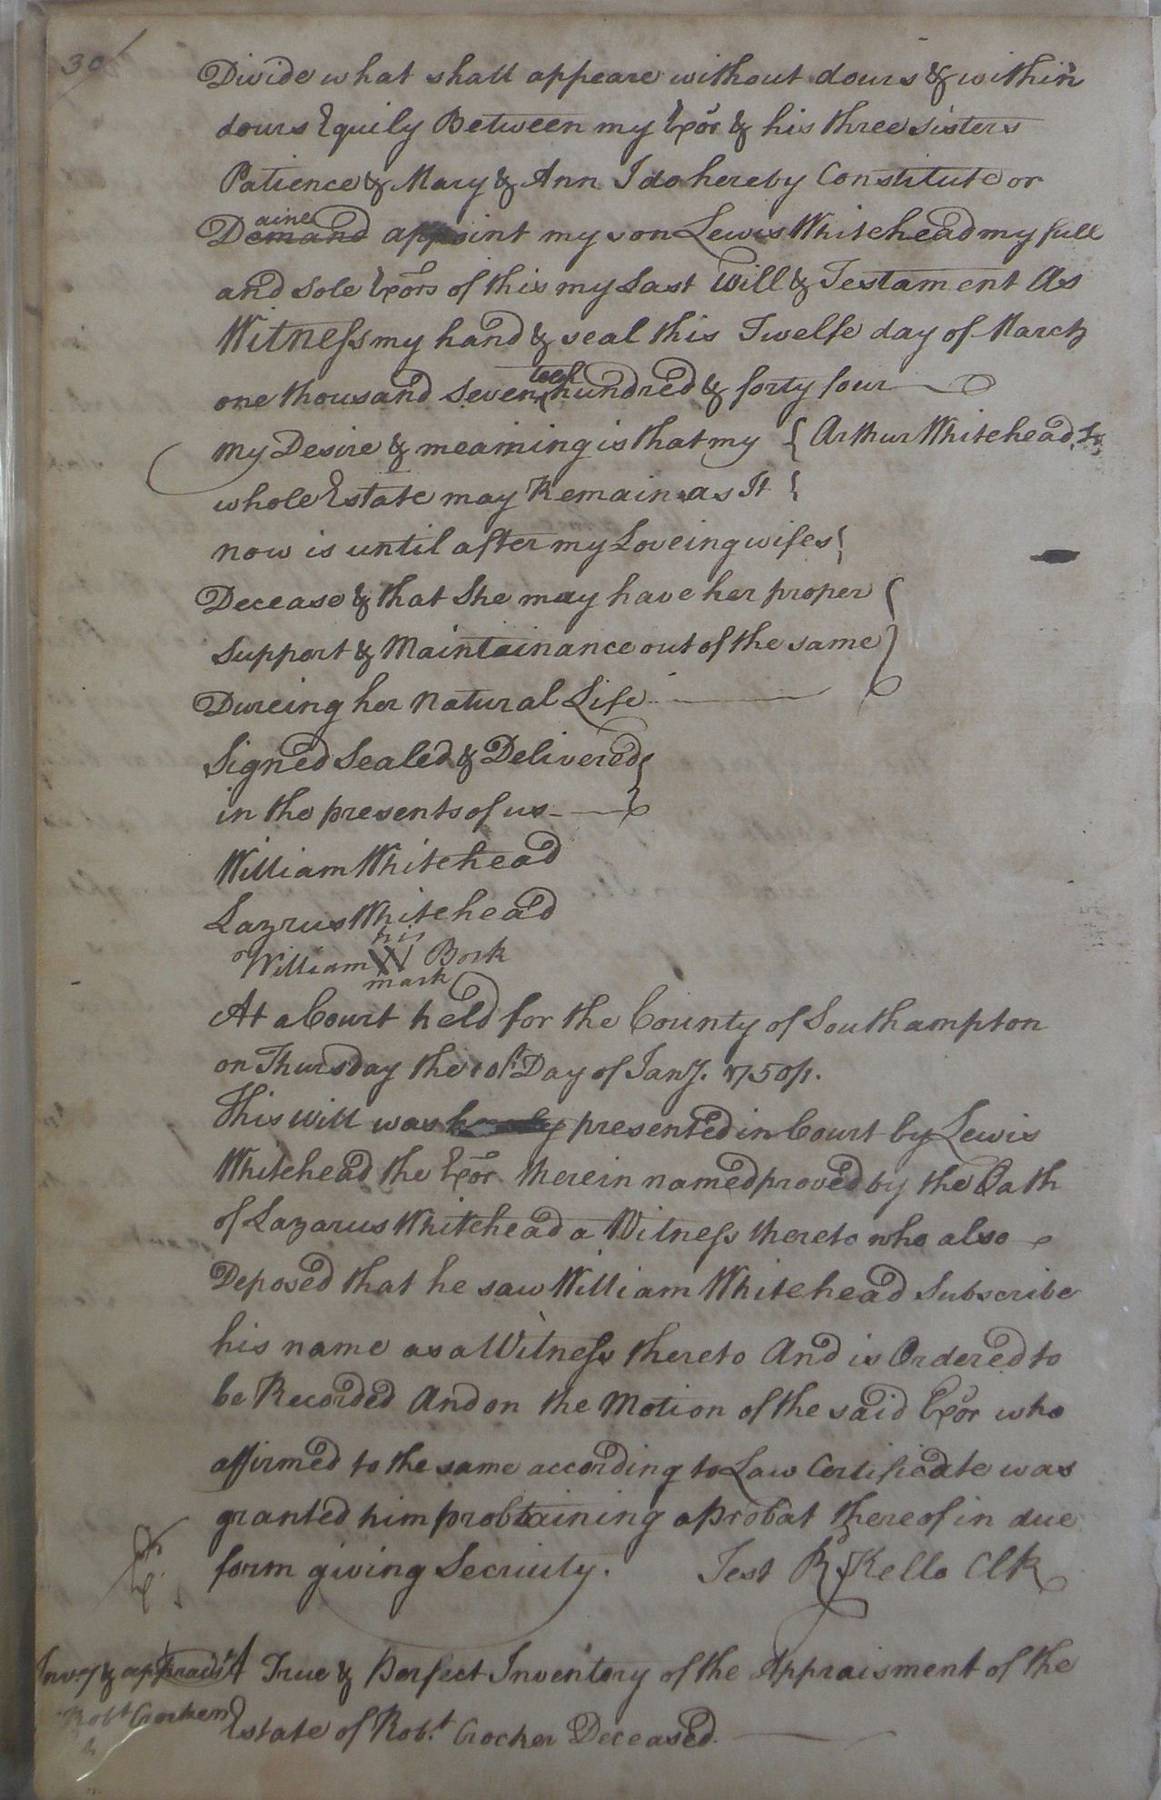 30
Divide what shall appeare without dours & within
dours Equily Between my Exor & his three sisters
Patience & Mary & Ann I do hereby Constitute or
aine
Demand appoint my son Lewis Whitehead my full
and Sole Exors of this my Last Will & Testament As
Witness my hand & seal this Twelfe day of March
one thousand Seven hundred & forty four
my Desire & meaining is that my { Arthur Whitehead
whole Estate may Remain as It
now is until after my Loveing wifes
Decease & that She may have her proper
Support & Maintainance out of the same
Dureing her Natural Life
Signed Sealed & Delivered
in the presents of us
William Whitehead
Lazrus Whitehead
his
William W Bork
mark
At a Court held for the County of Southampton
on Thursday the 10th Day of Jany. 1750/1.
This Will was presented in Court by Lewis
Whitehead the Exor therein named proved by the Oath
of Lazarus Whitehead a Witness thereto who also
Deposed that he saw William Whitehead Subscribe
his name as a Witness thereto And is Ordered to
be Recorded And on the Motion of the said Exor who
affirmed to the same according to Law Certificate was
granted him probtaining a Probat thereof in due
form giving Secruity. Test Rd Kello Clk
Invy & appraist A True & Perfect Inventory of the Appraisment of the
Robt Crocker Estate of Robt. Crocker Deceased.